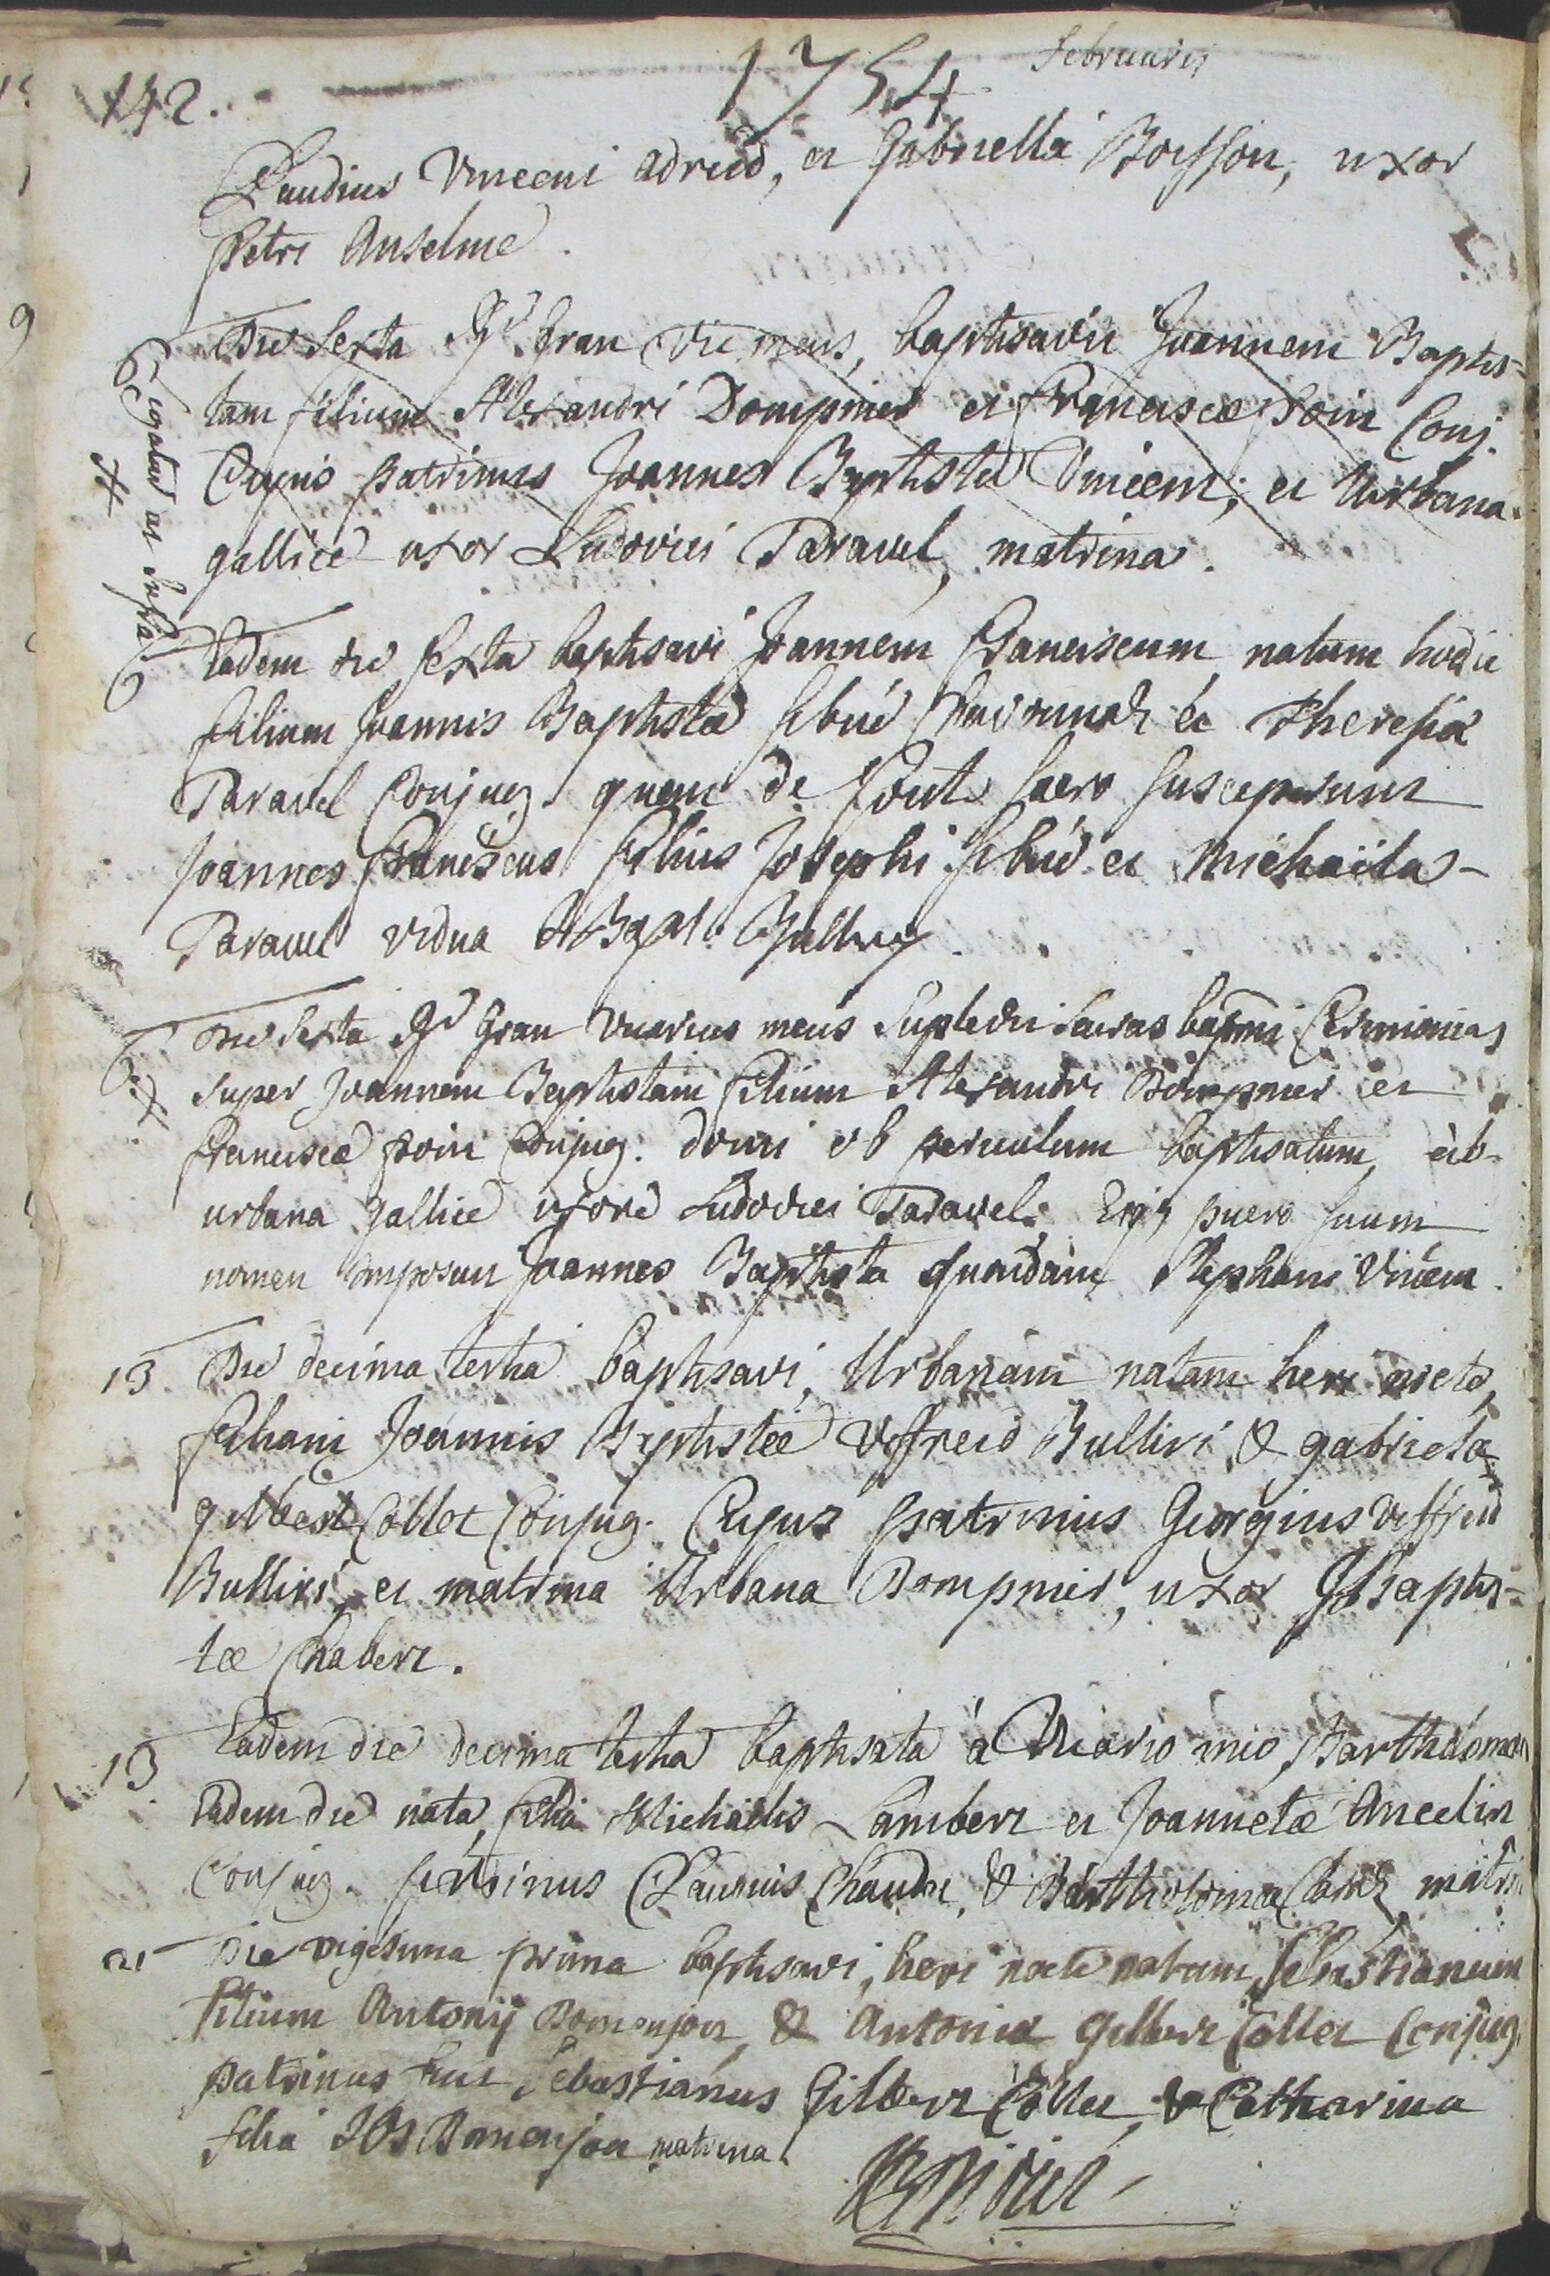 142.
1754
februarii
Claudius Vincent adreid, et Gabriella Boisson, uxor
Petri Anselme.
Die sexta Rd gran Vic meus, baptisavit Joannem Baptis-
tam filium Alexandri Dompnier et franciscæ Poin Conj.
Cujus patrinus Joannes Baptista Vincent, et Urbana
gallice uxor Ludovici Taravel, matrina.
6
Eadem die sexta baptisavi Joannem Franciscum natum hodie
filium Joannis Baptistæ et Theresia
Taravel Conjug. quem de fonte sacro susceperunt
Joannes franciscus filius Josephi et Michaëla
Taravel vidua
6 Die sexta Rd gran Vicarius meus Suplevit Sacras bapmi Ceremonias
super Joannem Baptistam filium Alexandri Dompnier et
franciscæ poin Conjug. domi ob periculum baptisatum, ab
urbana gallice uxore Ludovici Taravel. puero suum
nomen imposuit Joannes Baptista quondam Stephani Vincent.
13 Die decima tertia baptisavi, Urbanam natam heri nocte,
filiam Joannis Baptistæ Voffreid Bulliri & gabrielæ
gilbert Collet Conjug. Cujus patrinus Georgius Voffreid
Bulliri, et matrina Urbana Dompnier, uxor J Baptis-
tæ Chabert.
13 Eadem die decima tertia baptisata à Vicario meo, Bartholomea
Eadem die nata, filia Michaëlis Lambert et Joannetæ Ancelin
Conjug. patrinus Claudius Chaudri, & Bartholomea matrin
21 Die vigesima prima baptisavi, heri nocte natum Sebastianum
filium Antonij Bomenjon, & Antonia gilbert Collet Conjug.
patrinus fuit Sebastianus Gilbert Collet, & Catharina
filia Bomenjon matrina